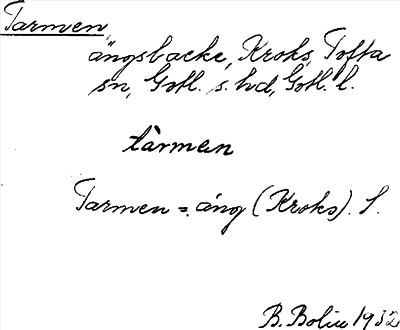 Tarmen,
ängsbacke, Kroks, Tofta
sn, Gotl. s. hd, Gotl. l.
tàrmen
Tarmen = äng (Kroks). S.
B. Bolin 1932